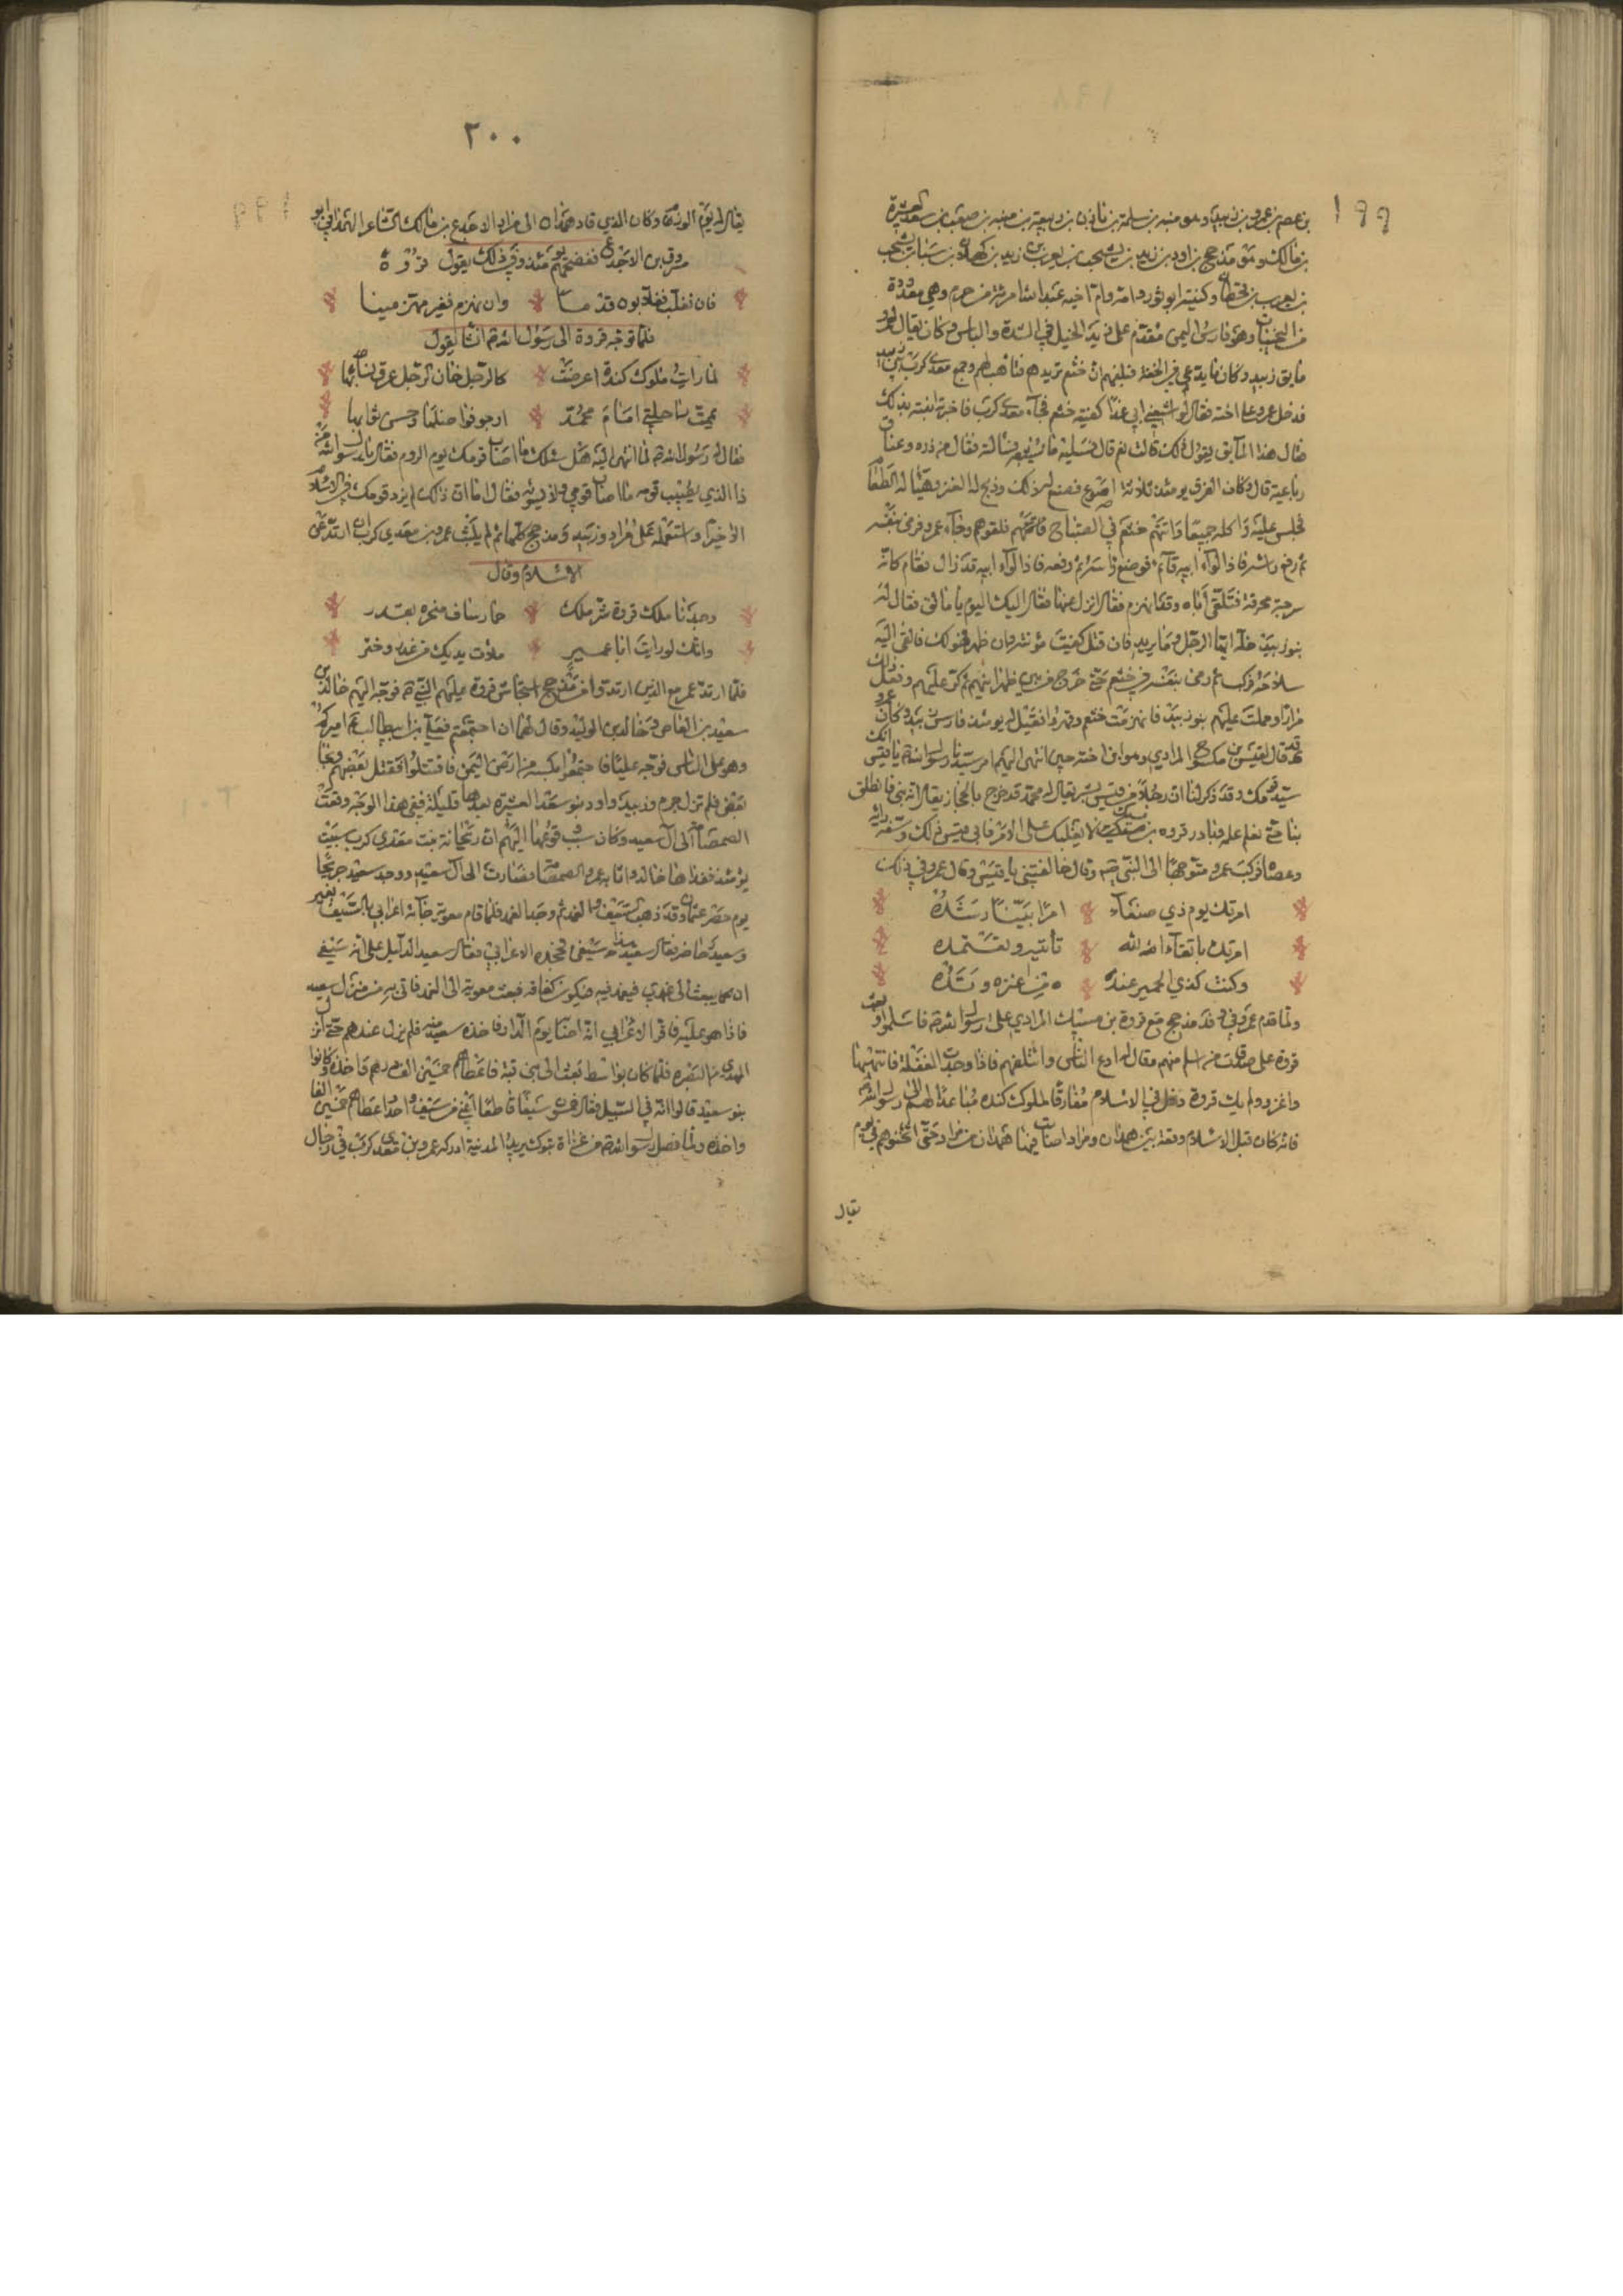 ١٩٩
بن عصم بن عمرو بن زبيد وهو منبه بن سلمة بن مازن بن ربيعة بن منبه بن صعب بن سعد العشيرة
بن مالك وهو مذحج بن ادد بن زيد بن يشجب بن يعرب بن زيد بن كهلان بن سبا بن يشجب
بن يعرب بن قحطان وكنيته ابو ثور وامه وام اخيه عبد الله امراة من جرم وهي معدودة
من المنجبات وهو فارس اليمن مقدم على زيد الخيل في الشدة والباس وكان يقال له
مايق زبيد وكان فبلغهم ان خثعم تريدهم فتاهبوا لهم وجمع معدي كرب بني زبيد
فدخل عمرو على اخته فقال لها اشبعيني اني غدا لكفيته خثعم فجاء معدي كرب فاخبرته ابنته بذلك
فقال هذا المايق يقول ذلك قالت نعم قال فسليه ما يشبعه فسالته فقال فرق من ذرة وعناق
رباعية قال وكان الفرق يومئذ ثلاثة اصوع فصنع له ذلك وذبح له العنز وهيا له الطعام
فجلس عليه فاكله جميعا واتتهم خثعم في الصباح فلقوهم وجاء عمرو فرمى بنفسه
ثم رفع راسه فاذا لواء ابيه قائم فوضع راسه ثم رفعه فاذا لواء ابيه قد زال فقام كانه
سرحة محرقة فتلقى اباه وقد انهزم فقال انزل عنها فقال اليك اليوم يا مايق فقال له
بنو زبيد خله ايها الرجل وما يريد فان قتل كفيت مؤنته وان ظهر فهو لك فالقى اليه
سلاحه فركب ثم رمى بنفسه في خثعم حتى خرج من بين اظهرهم ثم كر عليهم وفعل ذلك
مرارا وحملت عليهم بنو زبيد فانهزمت خثعم وقهروا فقيل له يومئذ فارس زبيد وكان عمرو
قد قال لقيس بن مكشوح المرادي وهو ابن اخته حين انتهى اليهم امر رسول الله يا قيس انك
سيد قومك وقد ذكر لنا ان رجلا من قريش يقال له محمد قد خرج بالحجاز يقال انه نبي فانطلق
بنا حتى نعلم علمه وبادر فروة بن مسيك لا يغلبك على الامر فابى قيس ذلك وسفه رايه
وعصاه فركب عمرو متوجها الى النبي وقال خالفتني يا قيس وقال عمرو في ذلك
امرتك يوم ذي صنعاء امرا بينا رشده
امرتك باتقاء الله تاتيه وتتعده
وكنت كذي الحمير عنده وتده
ولما قدم عمرو في وفد مذحج مع فروة بن مسيك المرادي على رسول الله فاسلموا وبعث
فروة على صدقات من اسلم منهم وقال له ادع الناس وائتلفهم فاذا وجدت الغفلة فاهتبلها
واغزو ولم يلبث فروة دخل في الاسلام مفارقا لملوك كندة مباعدا لهم الى رسول الله
فانه كان قبل الاسلام وقعة بين همدان ومراد اصابت فيها همدان من مراد حتى اثخنوهم في يوم
يقال
٢٠٠
يقال له يوم الرزم وكان الذي قاد همدان الى مراد الاجدع بن مالك الشاعر الهمداني ابو
مسروق بن الاجدع ففضحهم يومئذ وفي ذلك يقول فروة
فان نغلب فغلابون قدما وان نهزم فغير مهزمينا
فلما توجه فروة الى رسول الله انشا يقول
لما رايت ملوك كندة اعرضت كالرجل خان الرجل عرق نسائها
يممت راحلتي امام محمد ارجو فواضلها وحسن ثوابها
فقال له رسول الله لما انتهى اليه هل ساءك ما اصاب قومك يوم الروم فقال يا رسول الله من
ذا الذي يصيب قومه ما اصاب قومي ولا يسوئه فقال اما ان ذلك لم يزد قومك في الاسلام
الا خيرا واستعمله على مراد وزبيد ومذحج كلها ثم لم يلبث عمرو بن معدي كرب ان ارتد عن
الاسلام وقال
وجدنا ملك فروة شر ملك حمار ساف منخره بقدر
وانك لو رايت ابا عمير ملات يديك من غدر وختر
فلما ارتد عمرو مع الذين ارتدوا من مذحج استجاش فروة عليهم النبي فوجه اليهم خالد بن
سعيد بن العاص وخالد بن الوليد وقال لهما ان اجتمعتم فعلي بن ابي طالب اميركم
وهو على الناس فوجه عليا فاجتمعوا بكسر من ارض اليمن فاقتتلوا فقتل بعضهم ونجا
بعض فلم تزل جرم وزبيد واود بنو سعد العشيرة بعدها قليلة ففي هذا الوجه وقعت
الصمصامة الى آل سعيد وكان سبب وقوعها اليهم ان ريحانة بنت معدي كرب سبيت
يومئذ ففداها خالد واثابه عمرو الصمصامة فصارت الى آل سعيد ووجد سعيد جريحا
يوم حصر عثمان وقد ذهب السيف والغمد ثم وجد الغمد فلما قام معوية جاءه اعرابي بالسيف بغير
وسعيد حاضر فقال سعيد هذا سيفي فجحده الاعرابي فقال سعيد الدليل على انه سيفي
ان تبعث الى غمدي فيغمد فيه فيكون كفافه فبعث معوية الى الغمد فاتى به من منزل سعيد
فاذا هو عليه فاقر الاعرابي انه اصابه يوم الدار فاخذه سعيد منه فلم يزل عندهم حتى
المهدي من البصرة فلما كان بواسط بعث الى
بنو سعيد قالوا انه في السبيل فقال خمسون سيفا قاطعا اغنى من سيف واحد فاعطاهم خمسين الفا
واخذه ولما فصل رسول الله من غزاة تبوك يريد المدينة ادركه عمرو بن معدي كرب في رجال